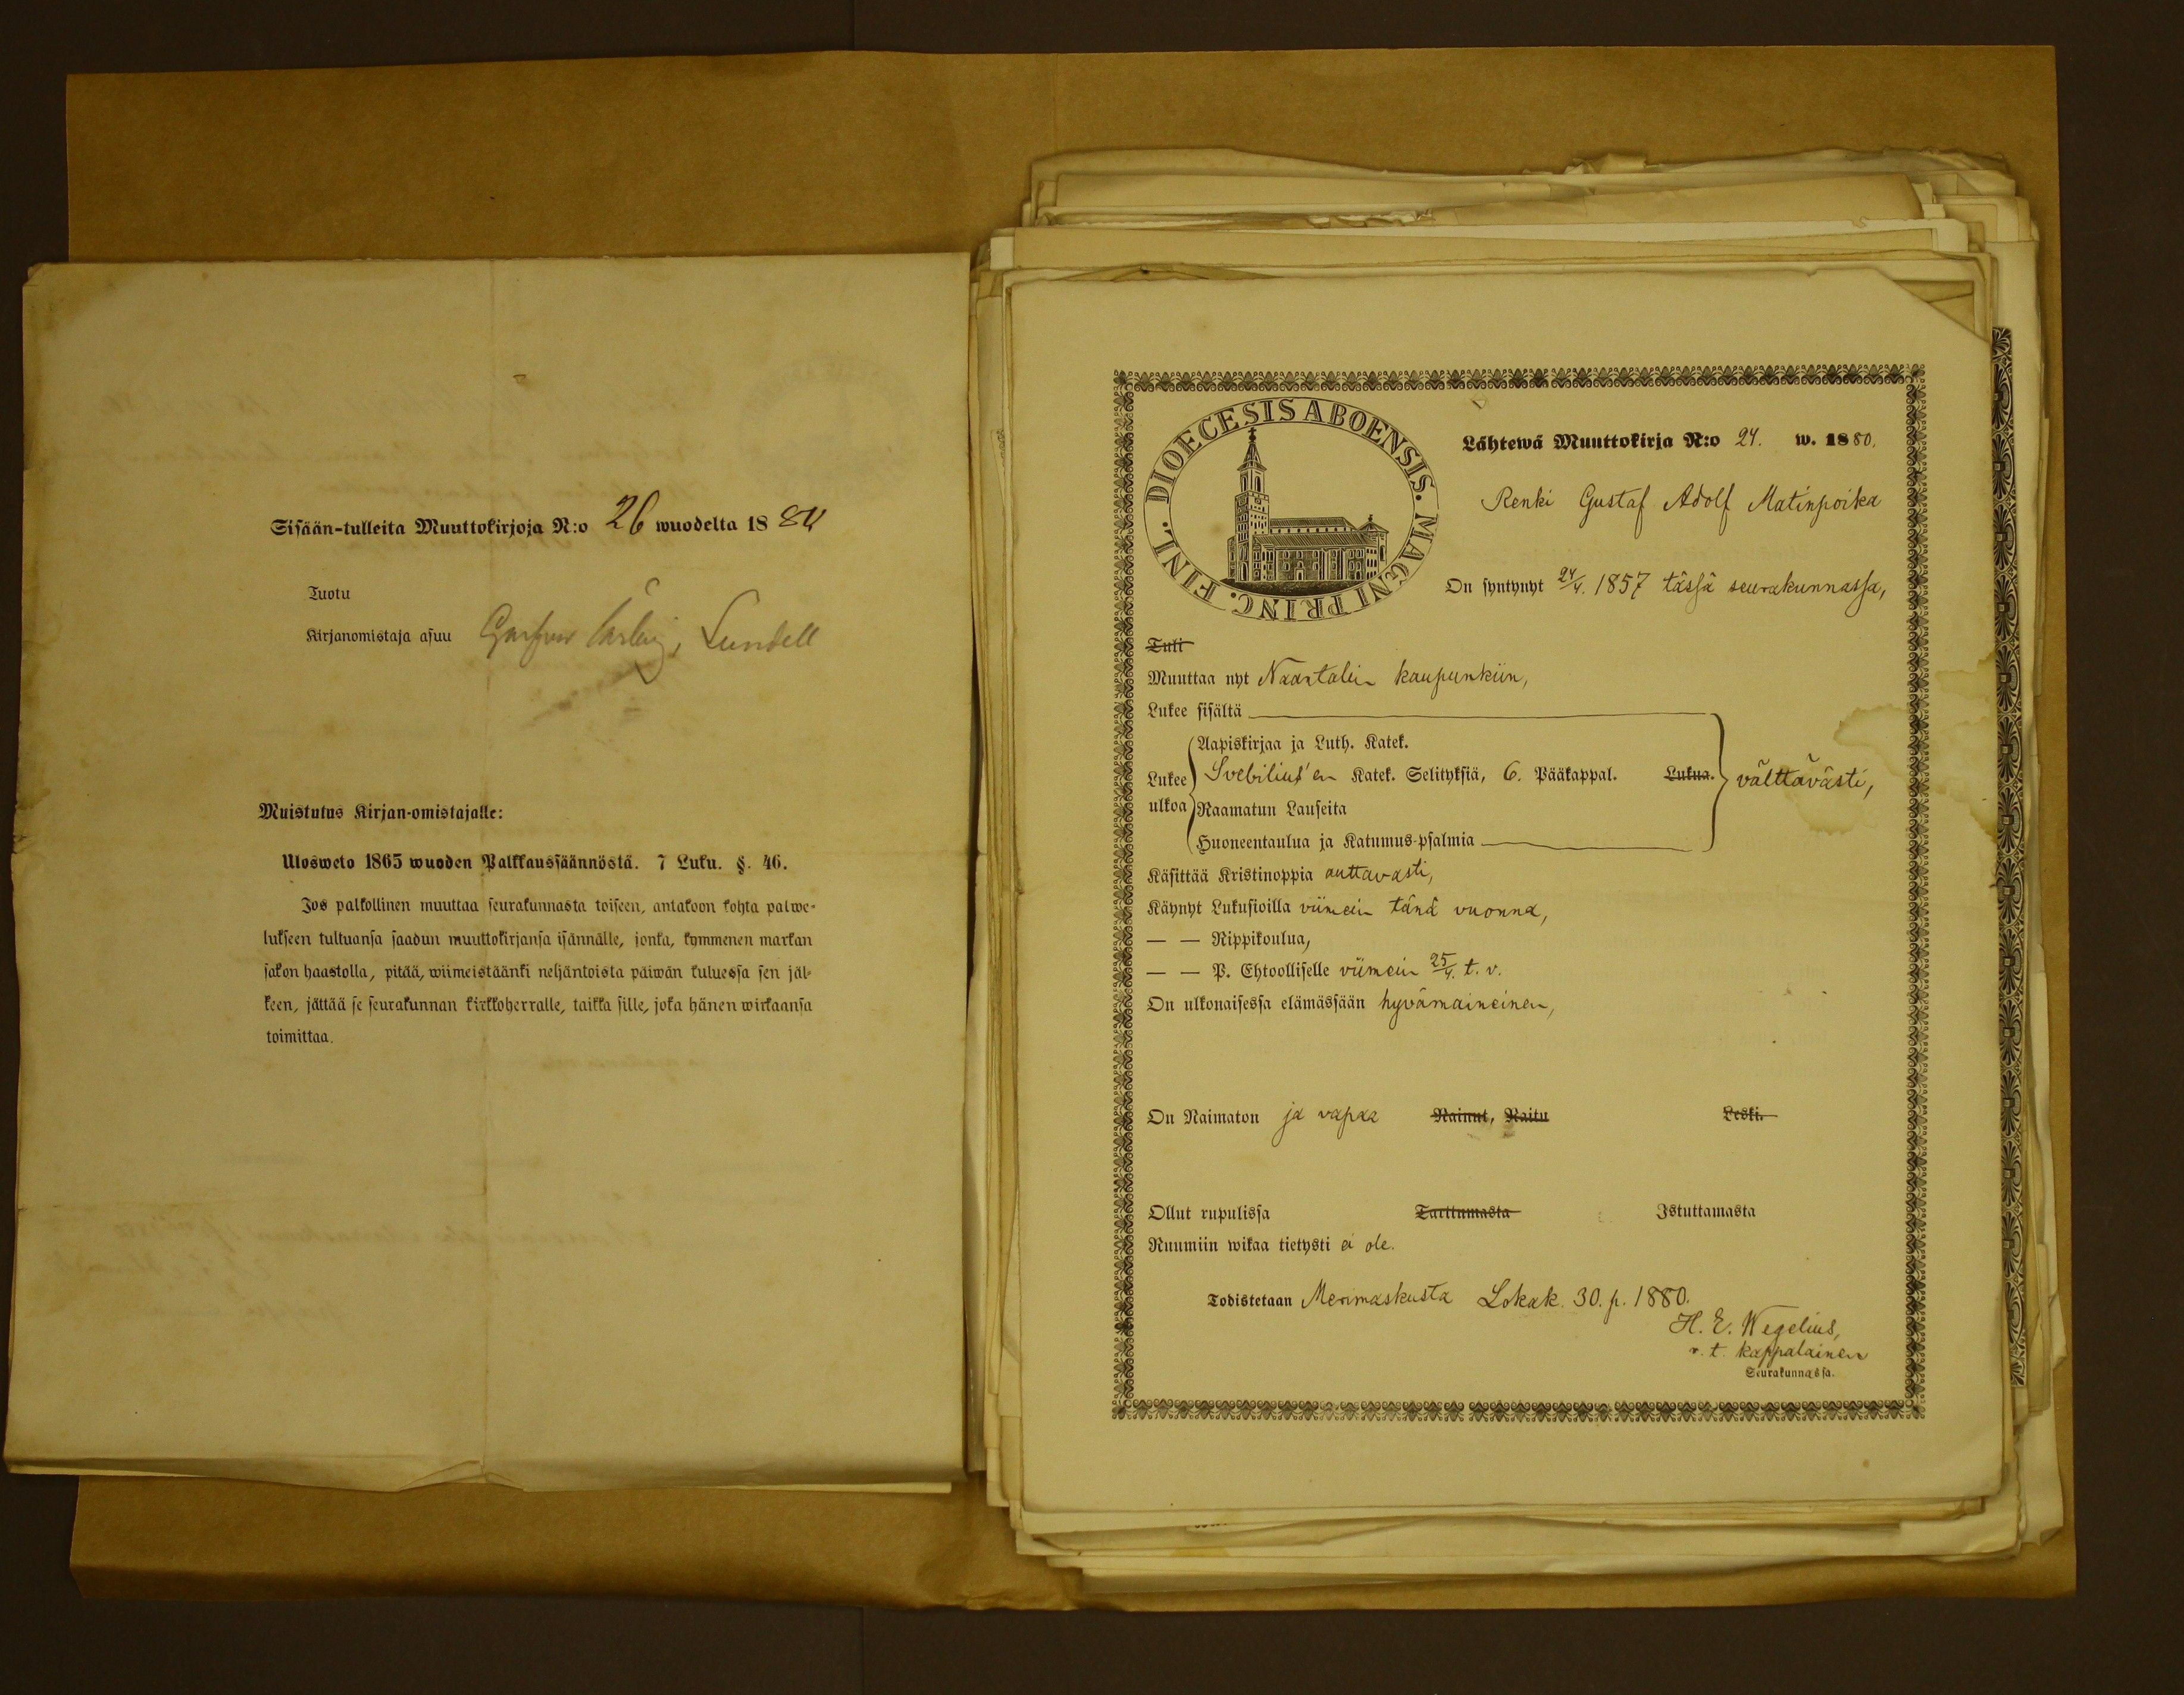 Sisään-tulleita Muuttokirjoja N:o 26 wuodelta 1880
Tuotu
Kirjanomistaja asuu Lundell
Muistutus Kirjan-omistajalle:
Ulosweto 1865 wuoden Palkkaussäännöstä. 7 Luku. §. 46.
Jos palkollinen muuttaa seurakunnasta toiseen, antakoon kohta palwe-
lukseen tultuansa saadun muuttokirjansa isännälle, jonka, kymmenen markan
sakon haastolla, pitää, wiimeistäänki neljäntoista päiwän kuluessa sen jäl-
keen, jättää se seurakunnan kirkkoherralle, taikka sille, joka hänen wirkaansa
toimittaa.
DIOECESIS ABOENSIS. MAGNI PRINC. FINL.
Lähtewä Muuttokirja N:o 24. w. 1880.
Renki Gustaf Adolf Matinpoika
On syntynyt 24/4. 1857 tässä seurakunnassa,
Tuli
Muuttaa nyt Naantalin kaupunkiin,
Lukee sisältä
Aapiskirjaa ja Luth. Katek.
Lukee Svebilius'en Katek. Selityksiä, 6. Pääkappal. Lukua. välttävästi,
ulkoa Raamatun Lauseita
Huoneentaulua ja Katumus-psalmia
Käsittää Kristinoppia auttavasti,
Käynyt Lukusioilla viimein tänä vuonna,
— — Rippikoulua,
— — P. Ehtoolliselle viimein 25/4. t. v.
On ulkonaisessa elämässään hyvämaineinen,
On Naimaton ja vapaa Nainut, Naitu Leski.
Ollut rupulissa Tarttumasta Istuttamasta
Ruumiin wikaa tietysti ei ole.
Todistetaan Merimaskusta Lokak. 30. p. 1880.
H. E. Wegelius,
v. t. kappalainen
Seurakunnassa.